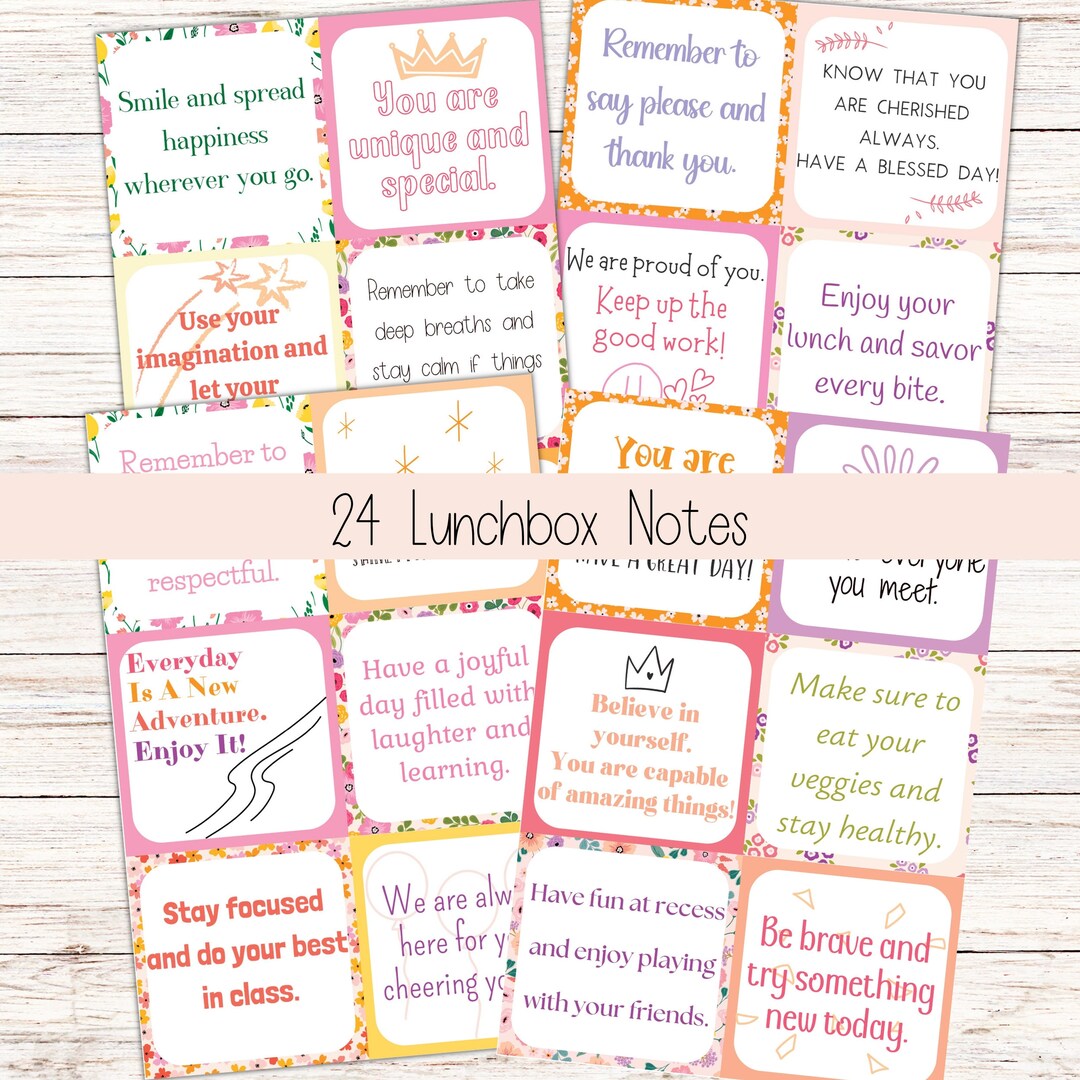 Smile and spread
happiness
wherever you go.
You are
unique and
special.
Remember to
say please and
thank you.
KNOW THAT YOU
ARE CHERISHED
ALWAYS.
HAVE A BLESSED DAY!
Use your
imagination and
let your
Remember to take
deep breaths and
stay calm if things
We are proud of you.
Keep up the
good work!
Enjoy your
lunch and savor
every bite.
Remember to
You are
24 Lunchbox Notes
respectful.
HAVE A GREAT DAY!
everyone
you meet.
Everyday
Is A New
Adventure.
Enjoy It!
Have a joyful
day filled with
laughter and
learning.
Believe in
yourself.
You are capable
of amazing things!
Make sure to
eat your
veggies and
stay healthy.
Stay focused
and do your best
in class.
We are alw
here for y
cheering yo
Have fun at recess
and enjoy playing
with your friends.
Be brave and
try something
new today.